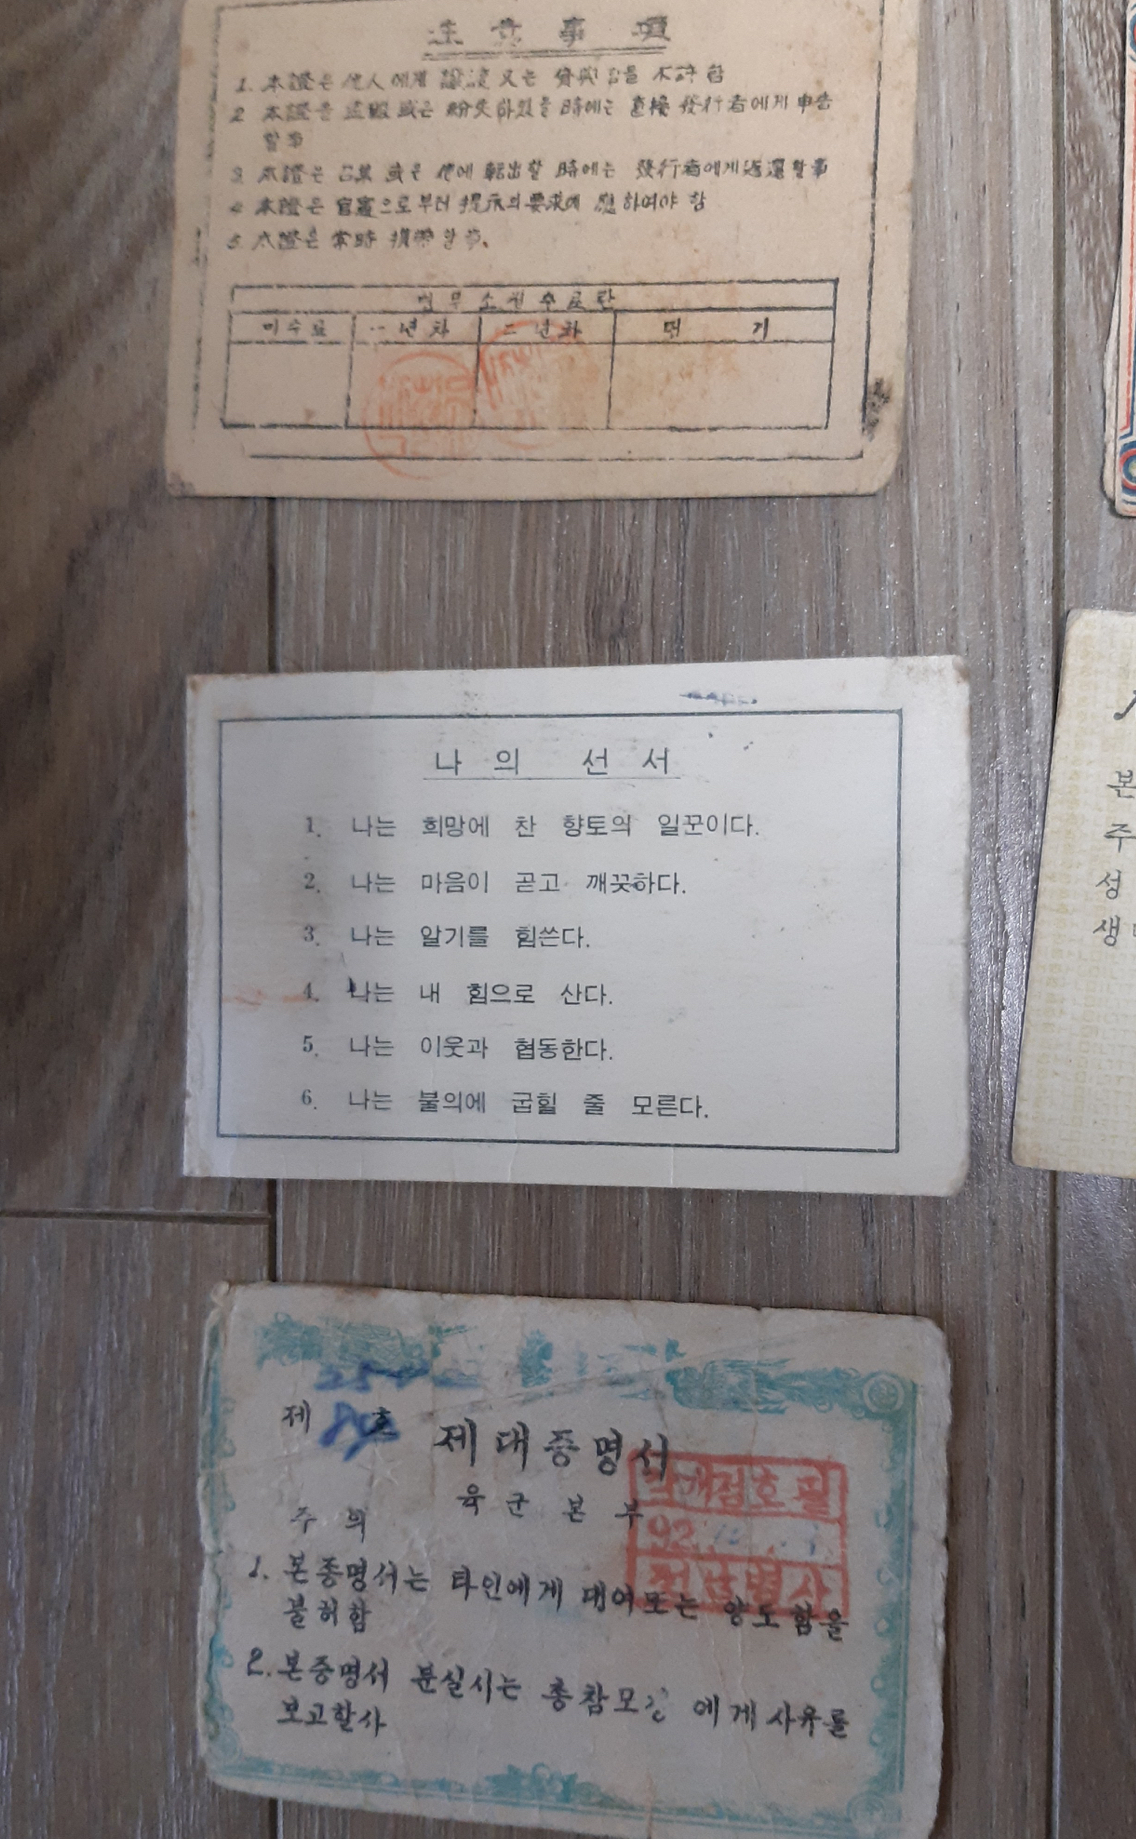 注意事項
1. 本證은 他人에게 讓渡 又는 貸與함을 不許함
2. 本證을 或은 紛失하였을 時에는 直接 發行者에게 申告
할事
3. 本證은 或은 他에 転出할 時에는 發行者에게 返還할事
4. 本證은 官憲으로부터 提示의 要求에 應하여야 함
5. 本證은 常時 携帶할事.
미수료 一년차 二년차
나의 선서
1. 나는 희망에 찬 향토의 일꾼이다.
2. 나는 마음이 곧고 깨끗하다.
3. 나는 알기를 힘쓴다.
4. 나는 내 힘으로 산다.
5. 나는 이웃과 협동한다.
6. 나는 불의에 굽힐 줄 모른다.
본
주
성
생
제 호 제대증명서
육군본부
주의
1. 본증명서는 타인에게 대여또는 양도함을
불허함
2. 본증명서 분실시는 총참모장에게 사유를
보고할사